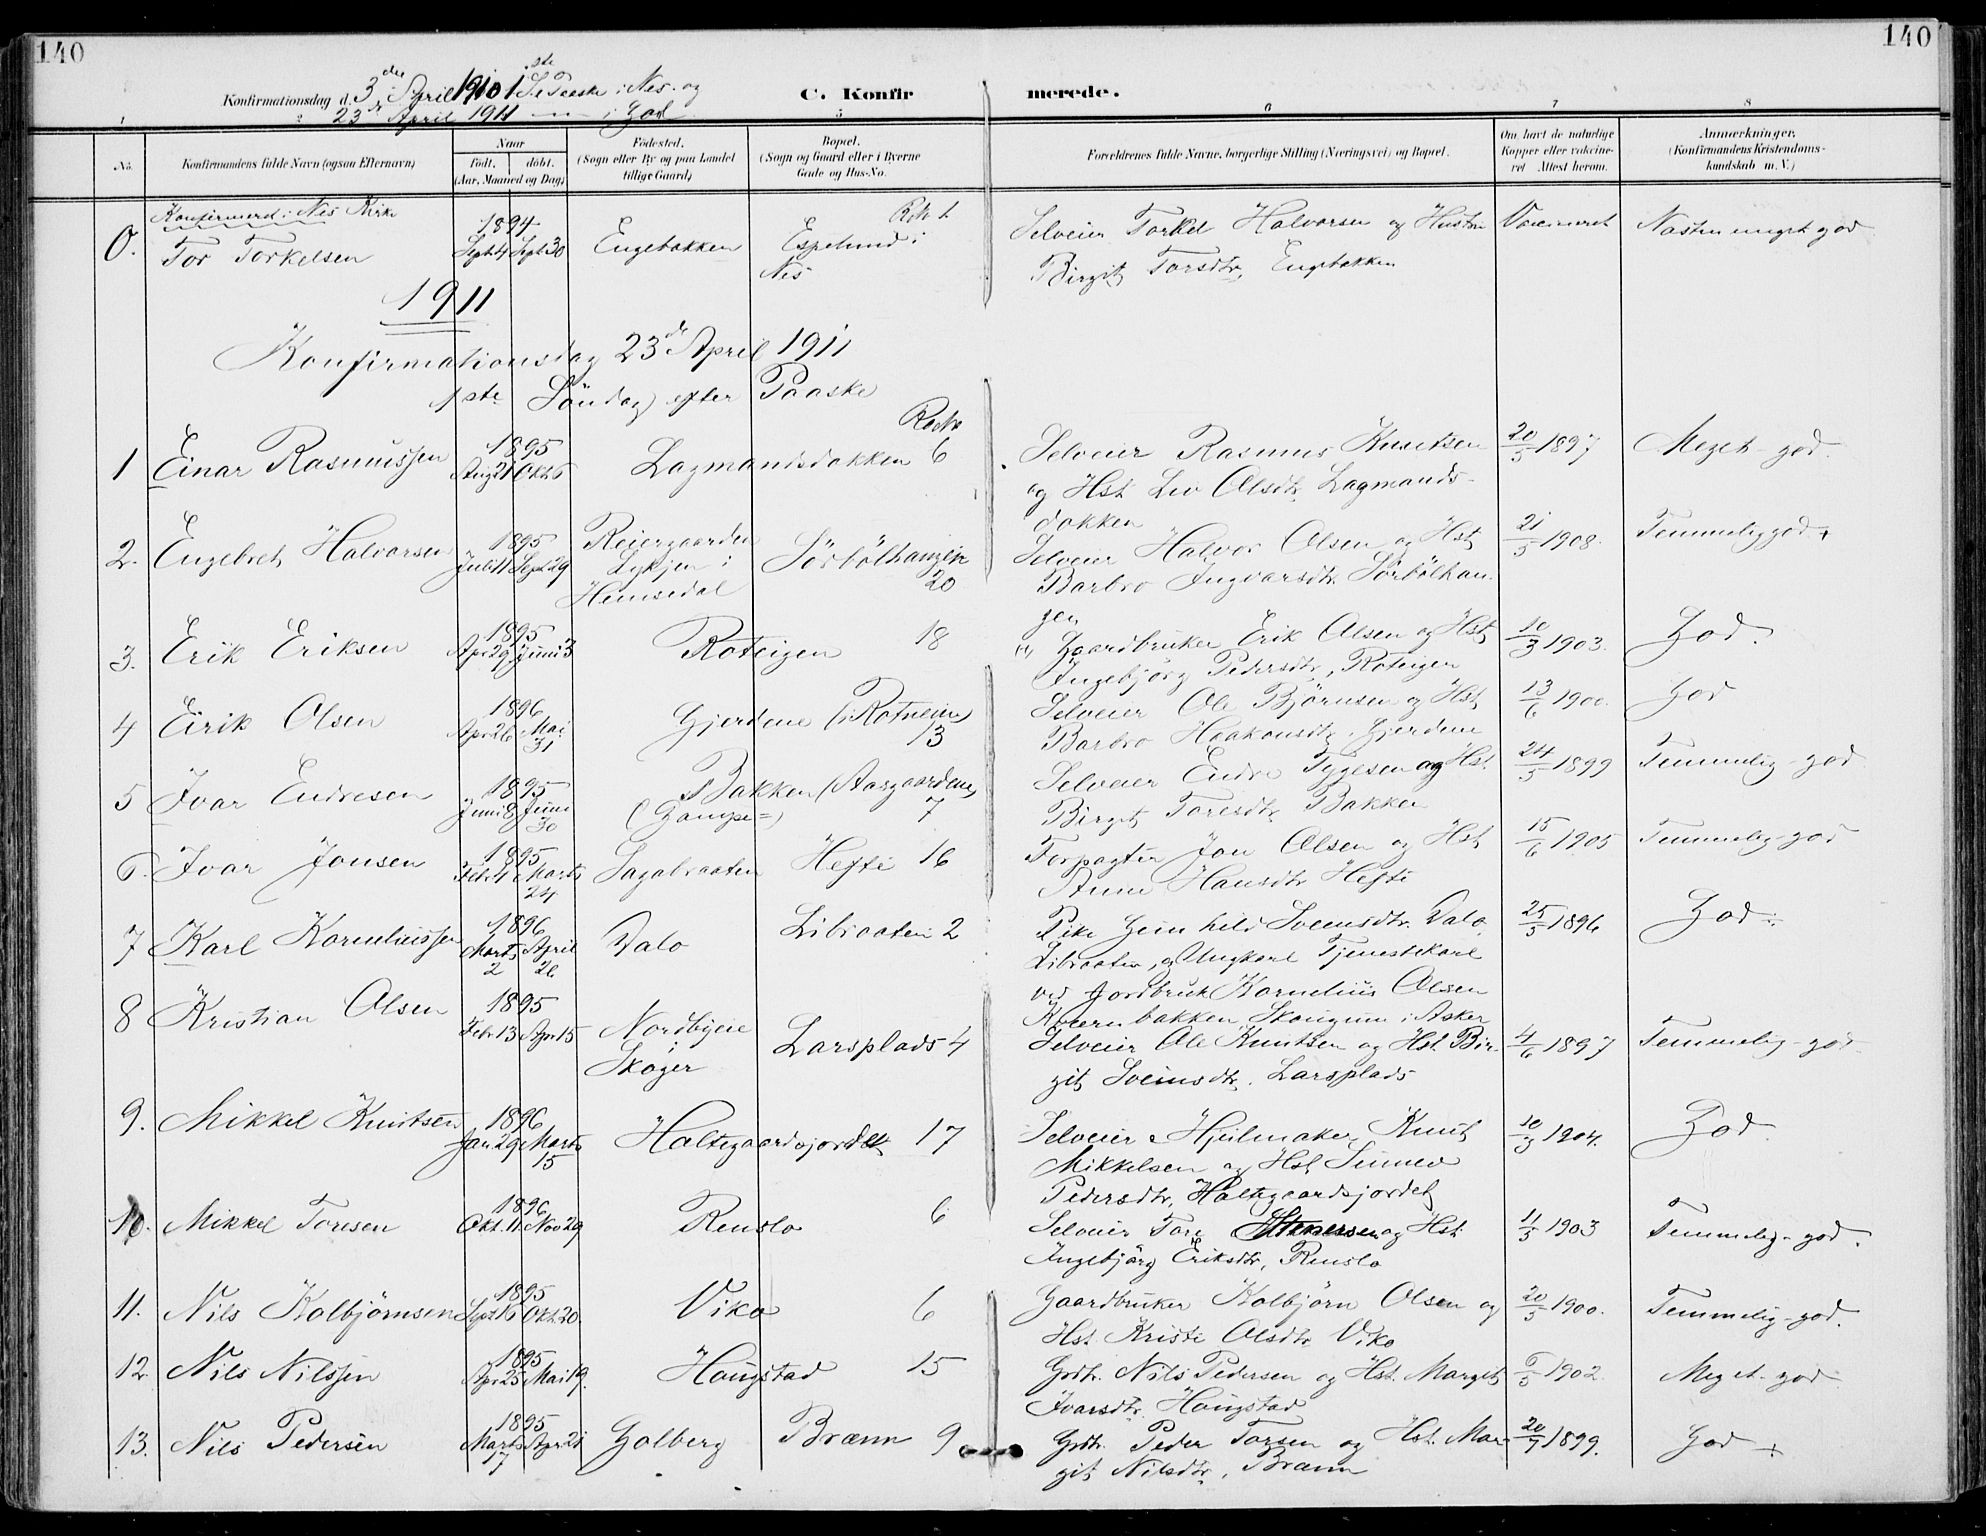 140
140
3die April 1910 1ste S. e. Paaske i Nes og
Konfirmationsdag d. 23de April 1911 — i Gol
C. Konfirmerede.
1 2 5 6 7 8
No. Konfirmandens fulde Navn (ogsaa Efternavn)
Naar
Født. døbt.
(Aar, Maaned og Dag)
Fødested.
(Sogn eller By og paa Landet
tillige Gaard)
Bopæl.
(Sogn og Gaard eller i Byerne
Gade og Hus-No.
Forældrenes fulde Navne, borgerlige Stilling (Næringsvei) og Bopæl.
Om havt de naturlige
Kopper eller vakcine-
ret Attest herom.
Anmærkninger.
(Konfirmandens Kristendoms-
kundskab m. V.)
Konfirmerd i Nes Kirke
0. Tor Torkelsen 1894 Sept 4 Sept 30 Engebakken Espelund i Nes
Selveier Torkel Halvorsen og Hustru Vaccineret Næsten meget god
Birgit Torsdtr. Engebakken
1911
Konfirmationsdag 23de April 1911
1ste Söndag efter Paaske
1 Einar Rasmussen 1895 Aug 21 Okt 6 Lagmandsdokken 6
Selveier Rasmus Knutsen 20/5 1897 Meget god.
og Hst Liv Olsdtr. Lagmands-
dokken
2. Engebret Halvorsen 1895 Juli 11 Sept 29 Reiergaarden
Lykjen i
Hemsedal
Sörbölhaugen
20
Selveier Halvor Olsen og Hst 21/5 1908. Temmelig god +
Barbro Ingvarsdtr. Sörbölhau-
gen
3. Erik Eriksen 1895 Apr 29 Juni 3 Roteigen 18
Gaardbruker Erik Olsen og Hst 10/3 1903. God.
Ingebjörg Pedersdtr, Roteigen
4 Eirik Olsen 1896 Apr 26 Mai 31 Gjerdene (i Rotneim)
13
Selveier Ole Björnsen og Hst 13/6 1900. God
Barbro Haakonsdtr. Gjerdene
5 Ivar Endresen 1895 Juni 8 Juni 30 Bakken (Aasgaardene)
(Gampe=) 7
Selveier Endre Tygesen og Hst. 24/5 1899 Temmelig god
Birgit Toresdtr Bakken
6. Ivar Jonsen 1895 Marts 24 Sagabraaten Hefte 16
Forpagter Jon Olsen og Hst 15/6 1905 Temmelig god
Anne Hansdtr Hefte
7 Karl Korneliussen 1896 Marts 2 April 26 Dalo Libraaten 2
Pike Gunhild Svensdtr. Dalo, 25/5 1896 God
Libraaten, og Ungkarl Tjenestekarl
ved Jordbruk Kornelius Olsen
Kvernbakken, Skaugum i Asker
8 Kristian Olsen 1895 Febr 13 Apr 15 Nordbyeie
Skoger
Larsplads 4
Selveier Ole Knutsen og Hst. Bir- 4/6 1897 Temmelig god
git Sveinsdtr. Larsplads
9. Mikkel Knutsen 1896 Jan 29 Marts 15 Haltegaardsjordet 17
Selveier Hjulmaker Knut 10/3 1904. God
Mikkelsen og Hst Sunnev
Pedersdtr, Haltegaardsjordet
10. Mikkel Toresen 1896 Okt. 11 Nov 29 Renslo 6
Selveier Tore og Hst. 11/5 1903 Temmelig god.
Ingebjörg Eriksdtr, Renslo
11. Nils Kolbjörnsen 1895 Sept 16 Okt. 20. Viko 6
Gaardbruker Kolbjörn Olsen og 20/5 1900. Temmelig god.
Hst. Kristi Olsdtr Viko
12 Nils Nilssen 1895 Apr 25 Mai 19. Haugstad 15
Grdbr. Nils Pedersen og Hst. Margit 6/5 1902. Meget god
Ivarsdtr. Haugstad
13. Nils Pedersen 1895 Marts 7 Apr 21 Golberg Brænn 9
Grdbr. Peder Torsen og Hst. Mar- 20/7 1899. God +
git Nilsdtr, Brænn